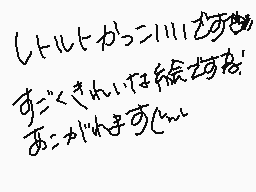 レトルトかっこいいですぜ
すごくきれいな絵ですね!
あこがれますじゃん